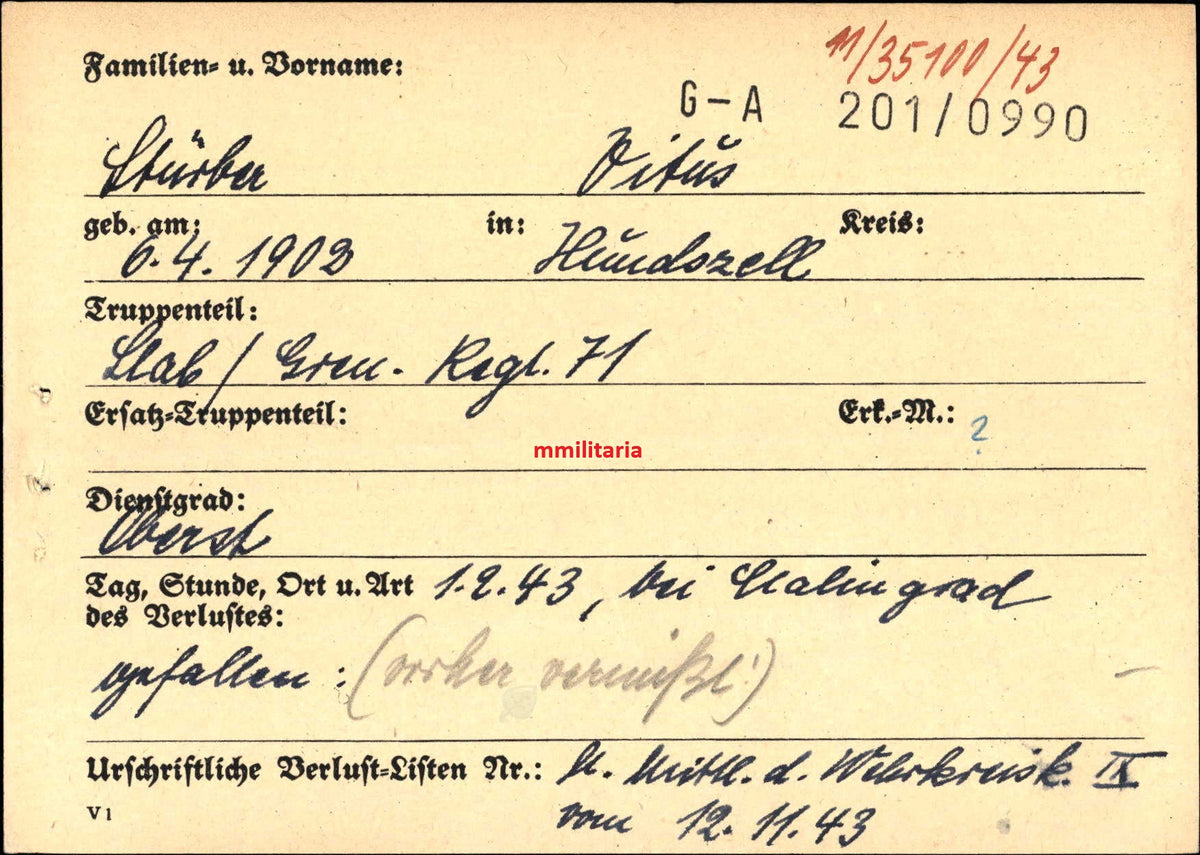 11/35100/43
Familien- u. Vorname:
G-A 201/0990
Stürber Vitus
geb. am: in: Kreis:
6.4.1902 Hundszell
Truppenteil:
Stab / Gren.- Regt. 71
Ersatz-Truppenteil: Erk.-M.: ?
mmilitaria
Dienstgrad:
Oberst
Tag, Stunde, Ort u. Art 1.2.43, bei Stalingrad
des Verlustes:
gefallen : (vorher vermißt!)
Urschriftliche Verlust-Listen Nr.: lt. Mittl. d. Wehrkreisk. IX
V 1 vom 12.11.43